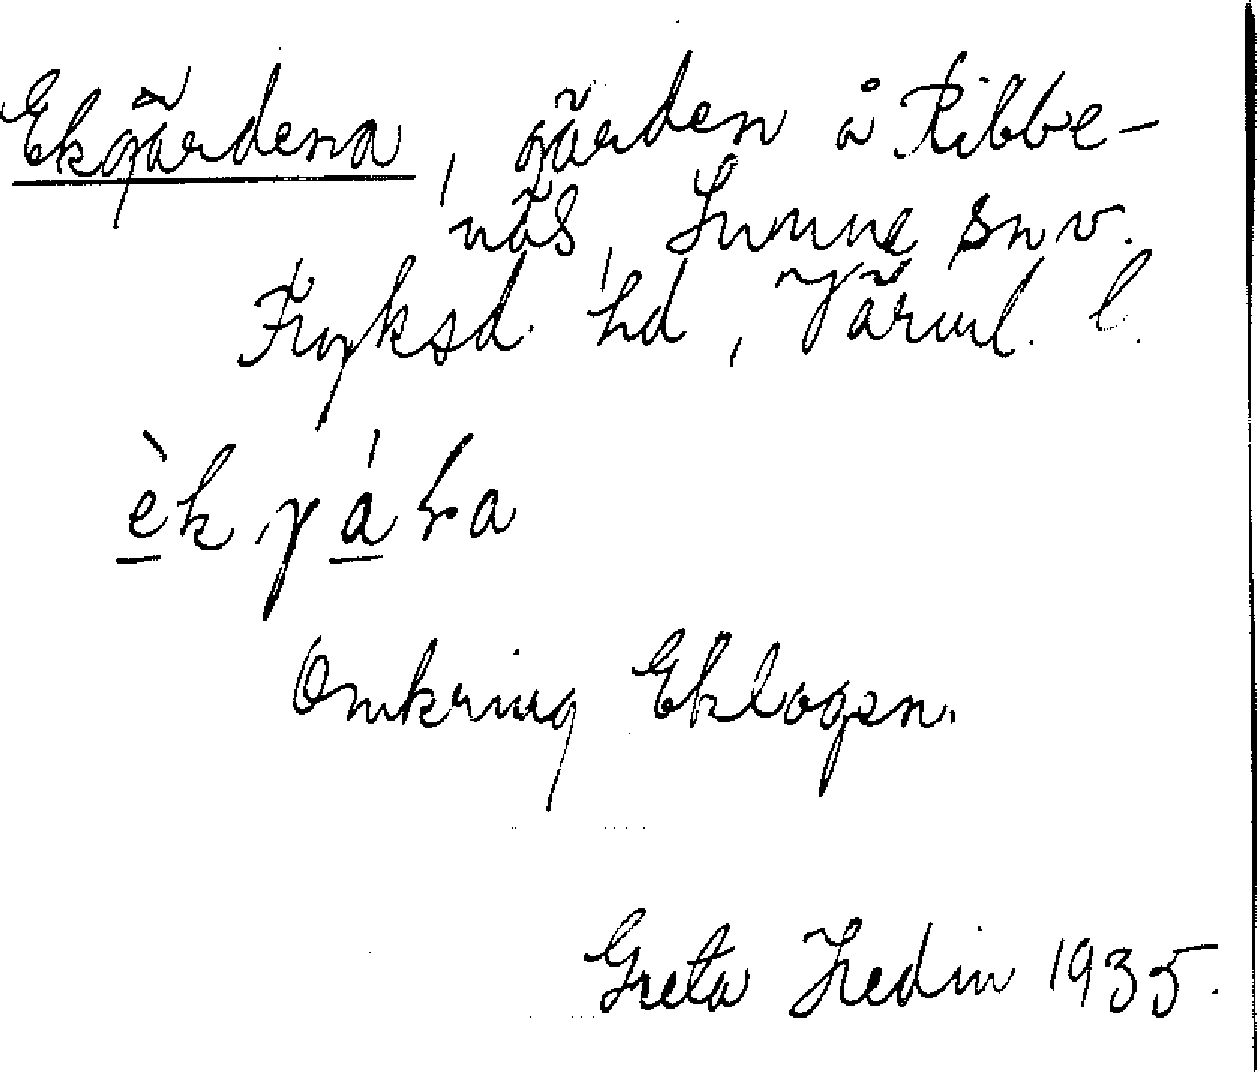 Ekgärdena, gärden å Ribbe-
näs, Sunne snv.
Fryksd. hd, Värml. l.
Omkring Eklogen.
Greta Hedin 1935.